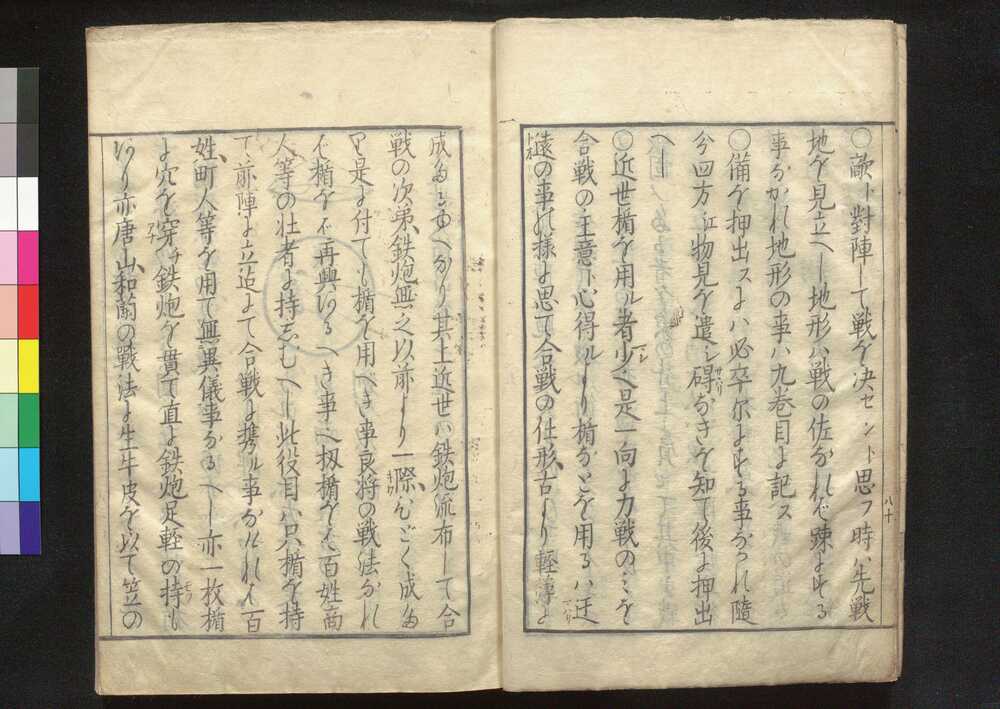 ○敵ト對陣して戦を决セント思フ時ハ先戦
地を見立へし地形ハ戦の佐なれバ疎よする
事なかれ地形の事ハ九巻目よ記ス
○備を押出スよハ必卒尓よする事なかれ隨
分回方江物見を遣シ碍なきを知て後よ押出
へし
○近世楯を用ル者少シ是一向よ力戦のミを
合戦の主意ト心得ルより楯なとを用るハ迂
遠の事の様よ思て合戦の仕形古より軽薄よ
八十
成たるゆへなり其上近世ハ鉄炮流布して合
戦の次第鉄炮無之以前より一際むごく成た
り是よ付ても楯を用へき事良将の戦法なれ
バ楯をバ再興あるへき事也扨楯をバ百姓商
人等の壮者よ持しむへし此役目ハ只楯を持
て前陣よ立迠よて合戦よ携ル事なけれバ百
姓町人等を用て無異儀事なるへし亦一枚楯
よ穴を穿チ鉄炮を貫て直よ鉄炮足軽の持も
あり亦唐山和蘭の戰法よ生牛皮を以て笠の